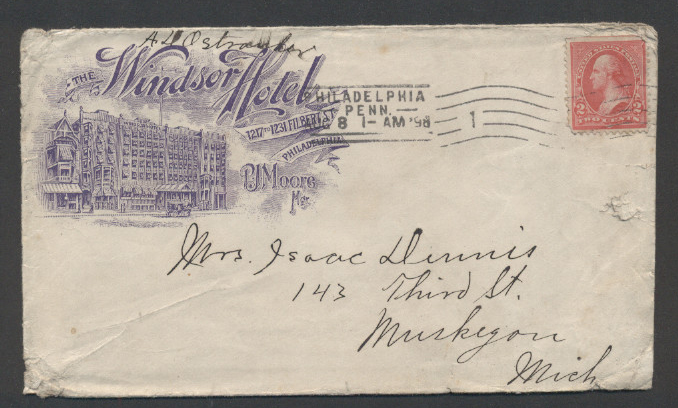 THE Windsor Hotel
1217 TO 1231 FILBERT ST.
PHILADELPHIA
P.J. Moore
Mgr.
PHILADELPHIA
PENN.
8 1-AM '98
1
2 2
TWO CENTS
Mrs. Isaac Dennis
143 Third St.
Muskegon
Mich